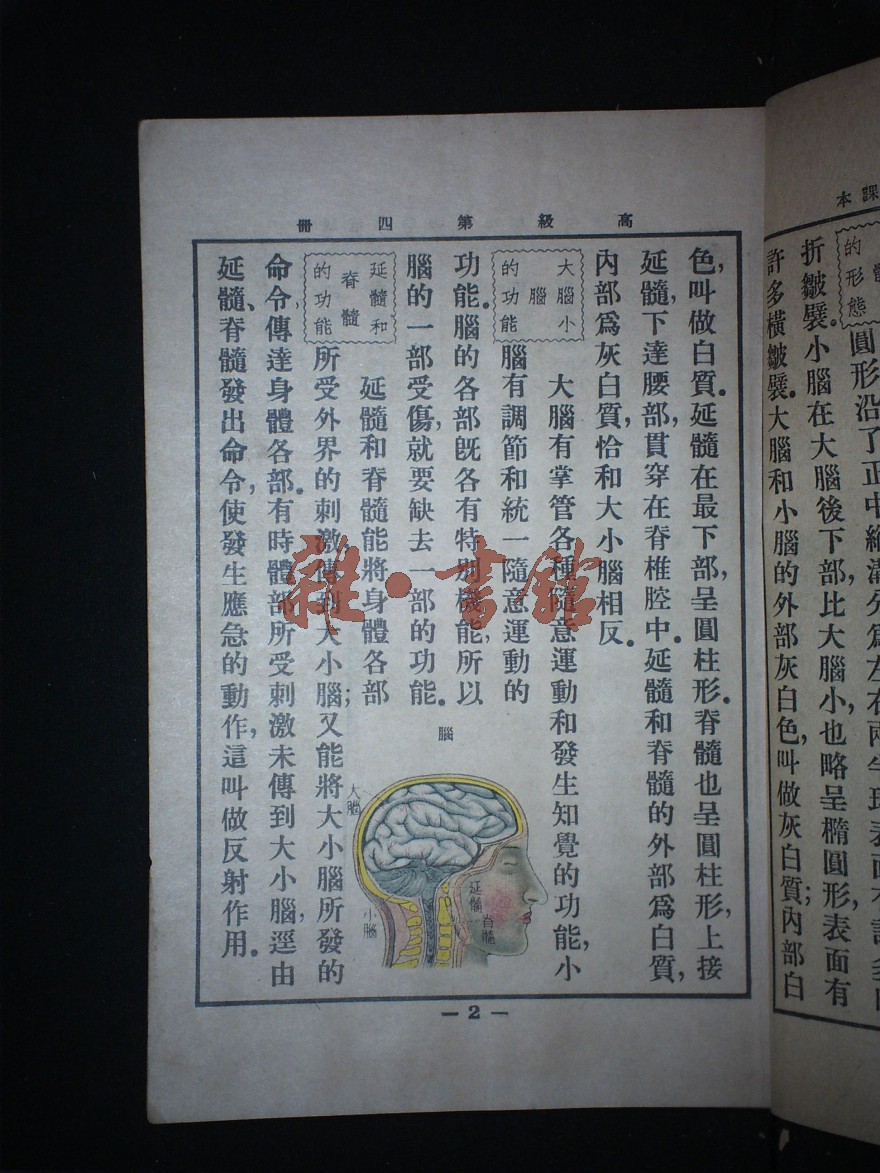 課本
的形態
圓形沿了正中縱溝分爲左右兩半球表面有許多
折皺襞。小腦在大腦後下部,比大腦小,也略呈橢圓形,表面有
許多橫皺襞。大腦和小腦的外部灰白色,叫做灰白質;內部白
高級第四冊
色,叫做白質。延髓在最下部,呈圓柱形。脊髓也呈圓柱形,上接
延髓,下達腰部,貫穿在脊椎腔中。延髓和脊髓的外部爲白質,
內部爲灰白質,恰和大小腦相反。
大腦小
腦
的功能
大腦有掌管各種隨意運動和發生知覺的功能,小
腦有調節和統一隨意運動的
功能。腦的各部旣各有特別機能,所以
腦的一部受傷,就要缺去一部的功能。
延髓和
脊髓
的功能
延髓和脊髓能將身體各部
所受外界的刺激,傳到大小腦;又能將大小腦所發的
命令,傳達身體各部。有時體部所受刺激未傳到大小腦,逕由
延髓、脊髓發出命令,使發生應急的動作,這叫做反射作用。
腦
大腦
小腦
延髓
脊髓
— 2 —
雜·書館